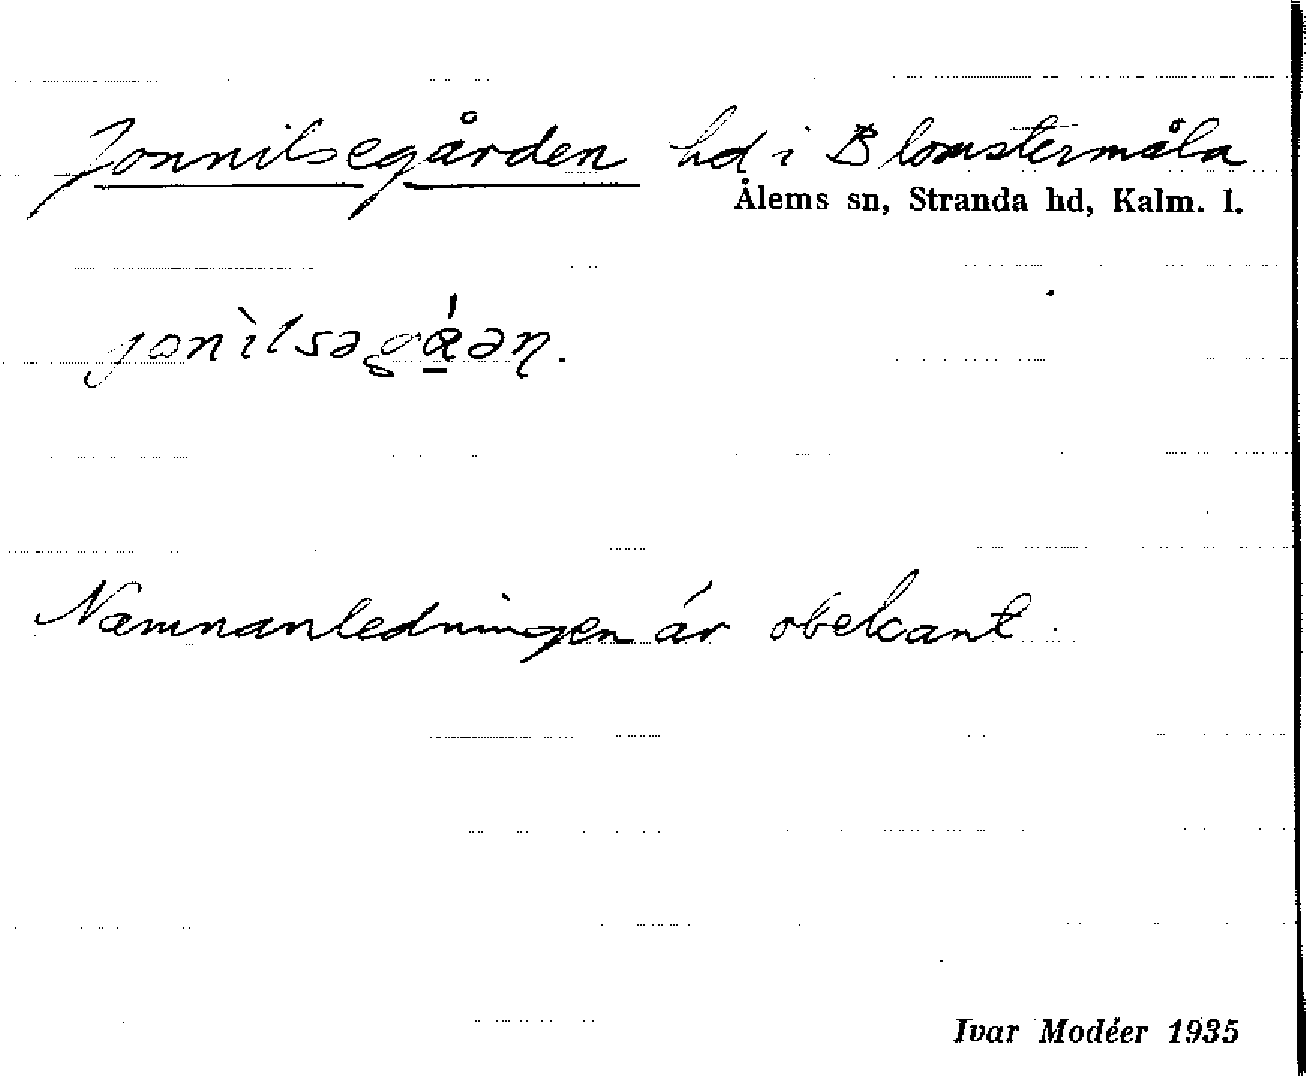 Jonnilsegården hd i Blomstermåla
Ålems sn, Stranda hd, Kalm. l.
Namnanledningen är obekant.
Ivar Modéer 1935